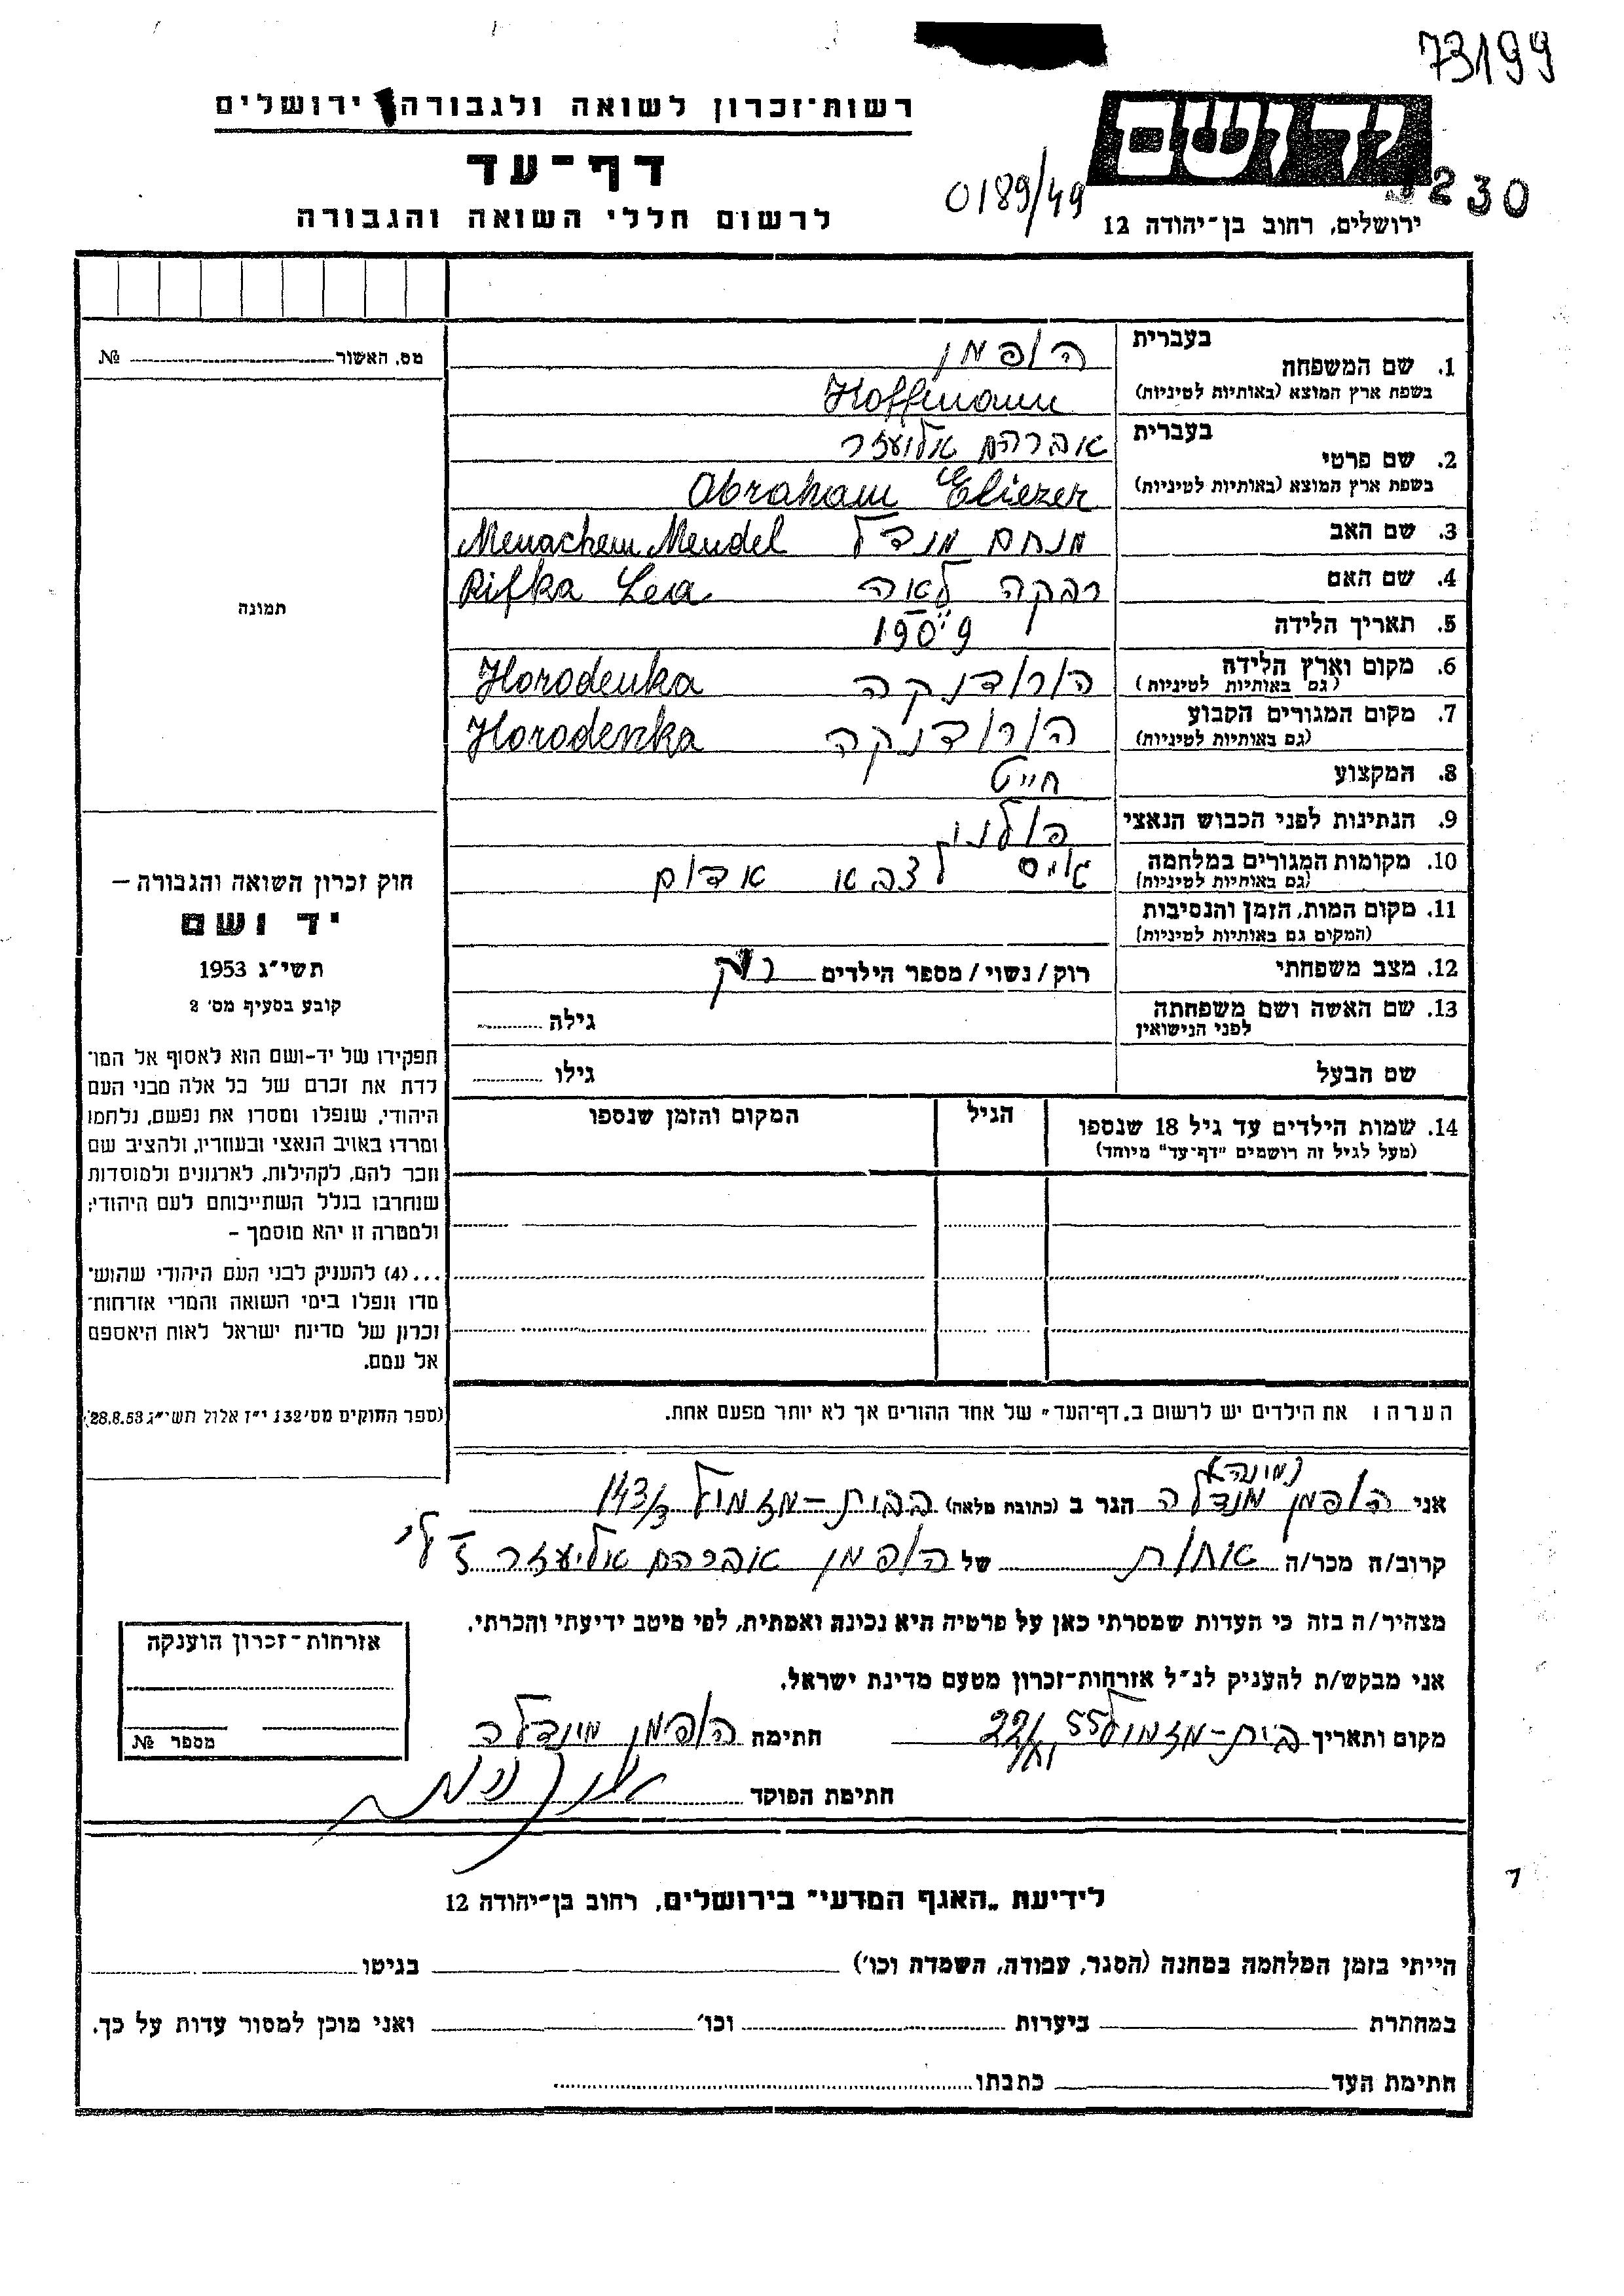 73199
רשות־זכרון לשואה ולגבורה ירושלים
ידושם
דף־עד
0189/49
230
לרשום חללי השואה והגבורה
ירושלים, רחוב בן־יהודה 12
מס. האשור № 
1. שם המשפחה בעברית הופמן
בשפת ארץ המוצא (באותיות לטיניות) Hoffmann
2. שם פרטי בעברית אברהם אליעזר
בשפת ארץ המוצא (באותיות לטיניות) Abraham Eliezer
3. שם האב מנחם מנדל Menachem Mendel
4. שם האם רבקה לאה Rifka Lea
תמונה
5. תאריך הלידה 1909
6. מקום וארץ הלידה הורודנקה Horodenka
(גם באותיות לטיניות)
7. מקום המגורים הקבוע הורודנקה Horodenka
(גם באותיות לטיניות)
8. המקצוע חייט
9. הנתינות לפני הכבוש הנאצי פולנו
10. מקומות המגורים במלחמה גויס לצבא אדום
(גם באותיות לטיניות)
11. מקום המות, הזמן והנסיבות
(המקום גם באותיות לטיניות)
12. מצב משפחתי רוק/נשוי/מספר הילדים רווק
13. שם האשה ושם משפחתה גילה
לפני הנישואין
שם הבעל גילו
14. שמות הילדים עד גיל 18 שנספו הגיל המקום והזמן שנספו
(מעל לגיל זה רושמים "דף־עד" מיוחד)
חוק זכרון השואה והגבורה —
יד ושם
תשי״ג 1953
קובע בסעיף מס' 2
תפקידו של יד-ושם הוא לאסוף אל המו־
לדת את זכרם של כל אלה מבני העם
היהודי, שנפלו ומסרו את נפשם, נלחמו
ומרדו באויב הנאצי ובעוזריו, ולהציב שם
וזכר להם, לקהילות, לארגונים ולמוסדות
שנחרבו בגלל השתייכותם לעם היהודי;
ולמטרה זו יהא מוסמך –
...(4) להעניק לבני העם היהודי שהוש־
מדו ונפלו בימי השואה והמרי אזרחות־
זכרון של מדינת ישראל לאות היאספם
אל עמם.
(ספר החוקים מס' 132 י״ז אלול תשי״ג 28.8.53)
הערה: את הילדים יש לרשום ב„דף־העד" של אחד ההורים אך לא יותר מפעם אחת.
אני הופמן מונדלה הגר ב (כתובת מלאה) בבית-מזמיל 143/3
קרוב/ה מכר/ה אחות של הופמן אברהם אליעזר ז"ל
מצהיר/ה בזה כי העדות שמסרתי כאן על פרטיה היא נכונה ואמתית, לפי מיטב ידיעתי והכרתי.
אני מבקש/ת להעניק לנ״ל אזרחות־זכרון מטעם מדינת ישראל.
מקום ותאריך בית-מזמיל 22/XI 55 חתימה הופמן מינדלה
חתימת הפוקד
אזרחות־זכרון הוענקה
מספר №
לידיעת „האגף המדעי" בירושלים, רחוב בן־יהודה 12
הייתי בזמן המלחמה במחנה (הסגר, עבודה, השמדה וכו') בגיטו
במחתרת ביערות וכו' ואני מוכן למסור עדות על כך.
חתימת העד כתבתו